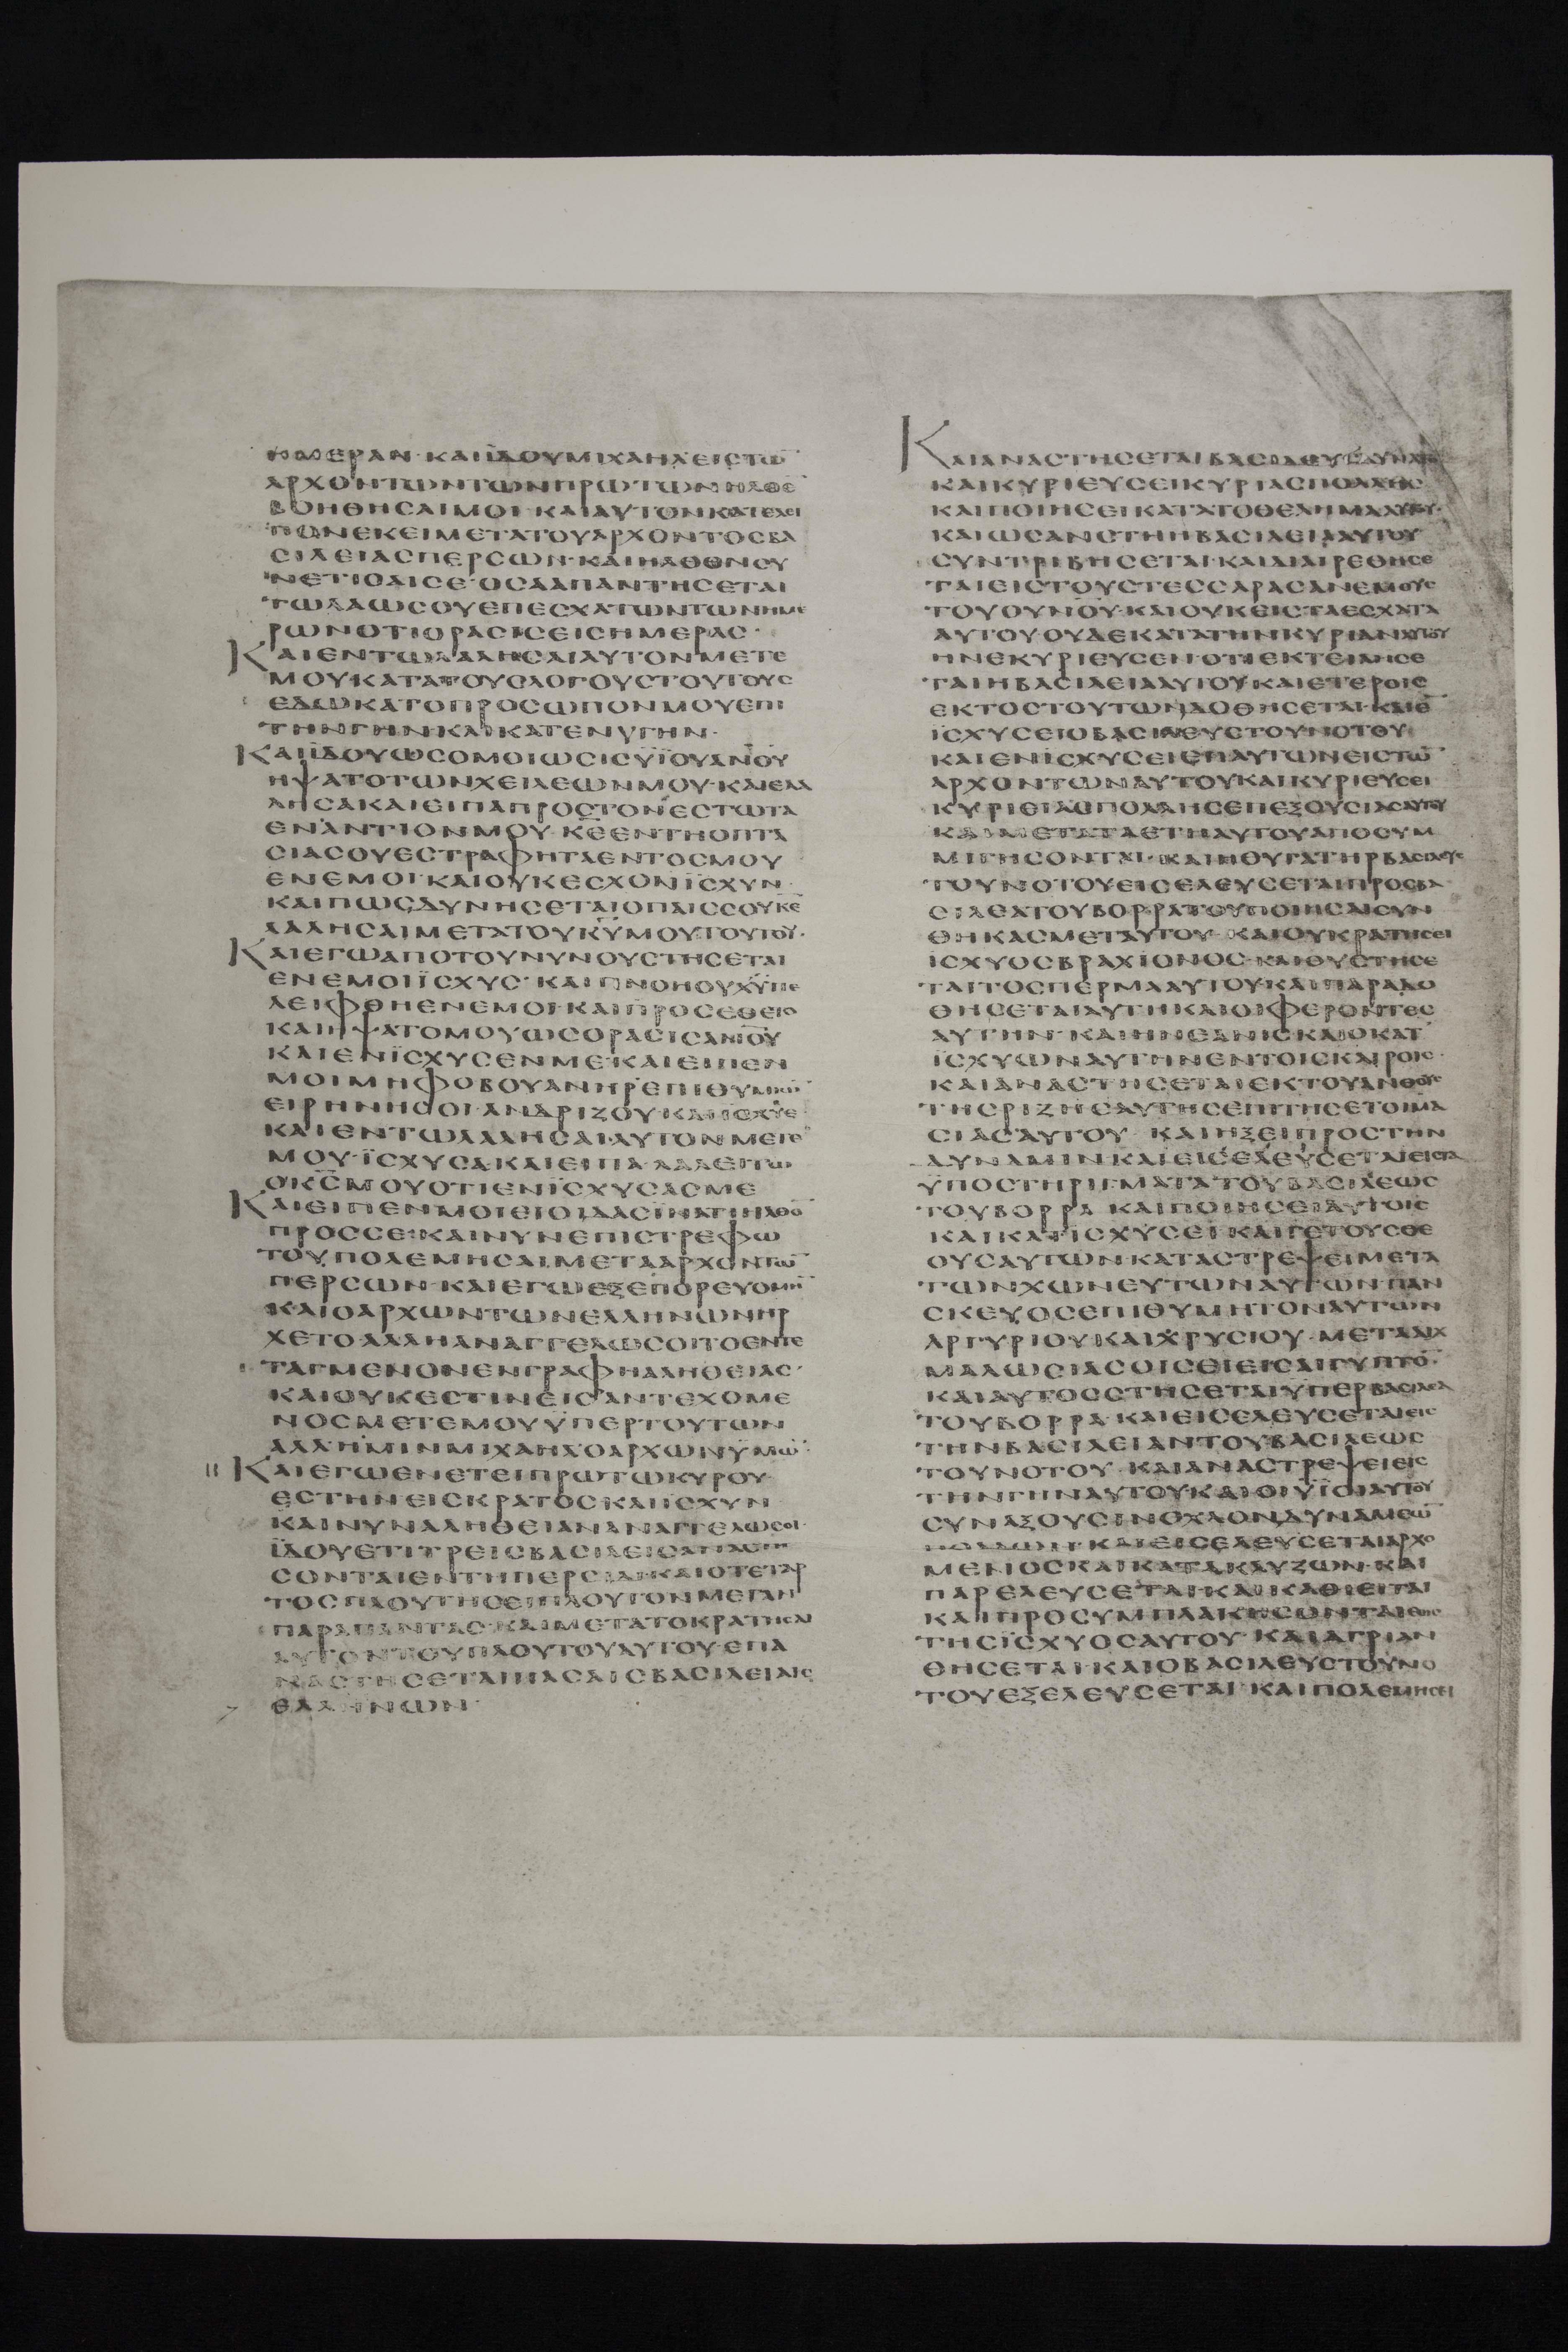 ΗΜΕΡΑΝ· ΚΑΙΪΔΟΥΜΙΧΑΗΛΕΙΣΤΩ̅
ΑΡΧΟΝΤΩΝΤΩΝΠΡΩΤΩΝΗΛΘΕ̅
ΒΟΗΘΗΣΑΙΜΟΙ· ΚΑΙΑΥΤΟΝΚΑΤΕΛΕΙ
ΠΟΝΕΚΕΙΜΕΤΑΤΟΥΑΡΧΟΝΤΟΣΒΑ
ΣΙΛΕΙΑΣΠΕΡΣΩΝ· ΚΑΙΗΛΘΟΝΣΥ
ΝΕΤΙΣΑΙΣΕ· ΟΣΑΑΠΑΝΤΗΣΕΤΑΙ
ΤΩΛΑΩΣΟΥΕΠΕΣΧΑΤΩΝΤΩΝΗΜΕ
ΡΩΝΟΤΙΟΡΑΣΙΣΕΙΣΗΜΕΡΑΣ·
ΚΑΙΕΝΤΩΛΑΛΗΣΑΙΑΥΤΟΝΜΕΤΕ
ΜΟΥΚΑΤΑΤΟΥΣΛΟΓΟΥΣΤΟΥΤΟΥΣ
ΕΔΩΚΑΤΟΠΡΟΣΩΠΟΝΜΟΥΕΠΙ
ΤΗΝΓΗΝΚΑΙΚΑΤΕΝΥΓΗΝ·
ΚΑΙΪΔΟΥΩΣΟΜΟΙΩΣΙΣΥΪΟΥΑΝ̅Ο̅Υ̅
ΗΨΑΤΟΤΩΝΧΕΙΛΕΩΝΜΟΥ· ΚΑΙΕΛΑ
ΛΗΣΑΚΑΙΕΙΠΑΠΡΟΣΤΟΝΕΣΤΩΤΑ
ΕΝΑΝΤΙΟΝΜΟΥ· Κ̅Ε̅ΕΝΤΗΟΠΤΑ
ΣΙΑΣΟΥΕΣΤΡΑΦΗΤΑΕΝΤΟΣΜΟΥ
ΕΝΕΜΟΙ· ΚΑΙΟΥΚΕΣΧΟΝΪΣΧΥΝ·
ΚΑΙΠΩΣΔΥΝΗΣΕΤΑΙΟΠΑΙΣΣΟΥΚ̅Ε̅
ΛΑΛΗΣΑΙΜΕΤΑΤΟΥΚ̅Υ̅ΜΟΥΤΟΥΤΟΥ·
ΚΑΙΕΓΩΑΠΟΤΟΥΝΥΝΟΥΣΤΗΣΕΤΑΙ
ΕΝΕΜΟΙΪΣΧΥΣ· ΚΑΙΠΝΟΗΟΥΧΫΠΕ
ΛΕΙΦΘΗΕΝΕΜΟΙ· ΚΑΙΠΡΟΣΕΘΕΤΟ
ΚΑΙΗΨΑΤΟΜΟΥΩΣΟΡΑΣΙΣΑΝ̅Ο̅Υ̅
ΚΑΙΕΝΪΣΧΥΣΕΝΜΕ· ΚΑΙΕΙΠΕΝ
ΜΟΙΜΗΦΟΒΟΥΑΝΗΡΕΠΙΘΥΜΙΩ̅
ΕΙΡΗΝΗΣΟΙ· ΑΝΔΡΙΖΟΥΚΑΙΪΣΧΥΕ
ΚΑΙΕΝΤΩΛΑΛΗΣΑΙΑΥΤΟΝΜΕΤΕ
ΜΟΥ· ΪΣΧΥΣΑ· ΚΑΙΕΙΠΑ· ΛΑΛΕΙΤΩ
ΟΚ̅Σ̅ΜΟΥΟΤΙΕΝΪΣΧΥΣΑΣΜΕ
ΚΑΙΕΙΠΕΝΜΟΙΕΙΟΙΔΑΣΪΝΑΤΙΗΛΘΟ̅
ΠΡΟΣΣΕ· ΚΑΙΝΥΝΕΠΙΣΤΡΕΦΩ
ΤΟΥΠΟΛΕΜΗΣΑΙΜΕΤΑΑΡΧΟΝΤΩ̅
ΠΕΡΣΩΝ· ΚΑΙΕΓΩΕΞΕΠΟΡΕΥΟΜΗ̅
ΚΑΙΟΑΡΧΩΝΤΩΝΕΛΛΗΝΩΝΗΡ
ΧΕΤΟ· ΑΛΛΗΑΝΑΓΓΕΛΩΣΟΙΤΟΕΝΤΕ
ΤΑΓΜΕΝΟΝΕΝΓΡΑΦΗΑΛΗΘΕΙΑΣ·
ΚΑΙΟΥΚΕΣΤΙΝΕΙΣΑΝΤΕΧΟΜΕ
ΝΟΣΜΕΤΕΜΟΥΫΠΕΡΤΟΥΤΩΝ
ΑΛΛΗΜΙΧΑΗΛΟΑΡΧΩΝΫΜΩ̅·
ΚΑΙΕΓΩΕΝΕΤΕΙΠΡΩΤΩΚΥΡΟΥ
ΕΣΤΗΝΕΙΣΚΡΑΤΟΣΚΑΙΪΣΧΥΝ
ΚΑΙΝΥΝΑΛΗΘΕΙΑΝΑΝΑΓΓΕΛΩΣΟΙ·
ΪΔΟΥΕΤΙΤΡΕΙΣΒΑΣΙΛΕΙΣΑΝΑΣΤΗ
ΣΟΝΤΑΙΕΝΤΗΠΕΡΣΙΔΙ· ΚΑΙΟΤΕΤΑΡ
ΤΟΣΠΛΟΥΤΗΣΕΙΠΛΟΥΤΟΝΜΕΓΑΝ
ΠΑΡΑΠΑΝΤΑΣ· ΚΑΙΜΕΤΑΤΟΚΡΑΤΗΣΑΙ
ΑΥΤΟΝΤΟΥΠΛΟΥΤΟΥΑΥΤΟΥ· ΕΠΑ
ΝΑΣΤΗΣΕΤΑΙΠΑΣΑΙΣΒΑΣΙΛΕΙΑΙΣ
ΕΛΛΗΝΩΝ·
ΚΑΙΑΝΑΣΤΗΣΕΤΑΙΒΑΣΙΛΕΥΣΔΥΝΑΤΟΣ
ΚΑΙΚΥΡΙΕΥΣΕΙΚΥΡΙΑΣΠΟΛΛΗΣ
ΚΑΙΠΟΙΗΣΕΙΚΑΤΑΤΟΘΕΛΗΜΑΑΥΤΟΥ·
ΚΑΙΩΣΑΝΣΤΗΗΒΑΣΙΛΕΙΑΑΥΤΟΥ
ΣΥΝΤΡΙΒΗΣΕΤΑΙ· ΚΑΙΔΙΑΙΡΕΘΗΣΕ
ΤΑΙΕΙΣΤΟΥΣΤΕΣΣΑΡΑΣΑΝΕΜΟΥΣ
ΤΟΥΟΥΝΟΥ· ΚΑΙΟΥΚΕΙΣΤΑΕΣΧΑΤΑ
ΑΥΤΟΥ· ΟΥΔΕΚΑΤΑΤΗΝΚΥΡΙΑΝΑΥΤΟΥ
ΗΝΕΚΥΡΙΕΥΣΕΝ· ΟΤΙΕΚΤΙΛΗΣΕ
ΤΑΙΗΒΑΣΙΛΕΙΑΑΥΤΟΥ· ΚΑΙΕΤΕΡΟΙΣ
ΕΚΤΟΣΤΟΥΤΩΝΔΟΘΗΣΕΤΑΙ· ΚΑΙΕ̅
ΪΣΧΥΣΕΙΟΒΑΣΙΛΕΥΣΤΟΥΝΟΤΟΥ·
ΚΑΙΕΝΪΣΧΥΣΕΙΕΠΑΥΤΩΝΕΙΣΤΩ̅
ΑΡΧΟΝΤΩΝΑΥΤΟΥΚΑΙΚΥΡΙΕΥΣΕΙ
ΚΥΡΙΕΙΑΠΟΛΛΗΣΕΠΕΞΟΥΣΙΑΣΑΥΤΟΥ
ΚΑΙΜΕΤΑΤΑΕΤΗΑΥΤΟΥΑΠΟΣΥΜ
ΜΙΓΗΣΟΝΤΑΙ· ΚΑΙΗΘΥΓΑΤΗΡΒΑΣΙΛΕΩΣ
ΤΟΥΝΟΤΟΥΕΙΣΕΛΕΥΣΕΤΑΙΠΡΟΣΒΑ
ΣΙΛΕΑΤΟΥΒΟΡΡΑΤΟΥΠΟΙΗΣΑΙΣΥΝ
ΘΗΚΑΣΜΕΤΑΥΤΟΥ· ΚΑΙΟΥΚΡΑΤΗΣΕΙ
ΙΣΧΥΟΣΒΡΑΧΙΟΝΟΣ· ΚΑΙΟΥΣΤΗΣΕ
ΤΑΙΤΟΣΠΕΡΜΑΑΥΤΟΥ· ΚΑΙΠΑΡΑΔΟ
ΘΗΣΕΤΑΙΑΥΤΗΚΑΙΟΙΦΕΡΟΝΤΕΣ
ΑΥΤΗΝ· ΚΑΙΗΝΕΑΝΙΣΚΑΙΟΚΑΤ
ΪΣΧΥΩΝΑΥΤΗΝΕΝΤΟΙΣΚΑΙΡΟΙΣ·
ΚΑΙΑΝΑΣΤΗΣΕΤΑΙΕΚΤΟΥΑΝΘΟΥΣ
ΤΗΣΡΙΖΗΣΑΥΤΗΣΕΠΙΤΗΣΕΤΟΙΜΑ
ΣΙΑΣΑΥΤΟΥ· ΚΑΙΗΞΕΙΠΡΟΣΤΗΝ
ΔΥΝΑΜΙΝΚΑΙΕΙΣΕΛΕΥΣΕΤΑΙΕΙΣΤΑ
ΫΠΟΣΤΗΡΙΓΜΑΤΑΤΟΥΒΑΣΙΛΕΩΣ
ΤΟΥΒΟΡΡΑ· ΚΑΙΠΟΙΗΣΕΙΕΝΑΥΤΟΙΣ
ΚΑΙΚΑΤΙΣΧΥΣΕΙ· ΚΑΙΓΕΤΟΥΣΘΕ
ΟΥΣΑΥΤΩΝ· ΚΑΤΑΣΤΡΕΨΕΙΜΕΤΑ
ΤΩΝΧΩΝΕΥΤΩΝΑΥΤΩΝ· ΠΑΝ
ΣΚΕΥΟΣΕΠΙΘΥΜΗΤΟΝΑΥΤΩΝ
ΑΡΓΥΡΙΟΥΚΑΙΧΡΥΣΙΟΥ· ΜΕΤΑΑΙΧ
ΜΑΛΩΣΙΑΣΟΙΣΕΙΕΙΣΑΙΓΥΠΤΟ̅·
ΚΑΙΑΥΤΟΣΣΤΗΣΕΤΑΙΫΠΕΡΒΑΣΙΛΕΑ
ΤΟΥΒΟΡΡΑ· ΚΑΙΕΙΣΕΛΕΥΣΕΤΑΙΕΙΣ
ΤΗΝΒΑΣΙΛΕΙΑΝΤΟΥΒΑΣΙΛΕΩΣ
ΤΟΥΝΟΤΟΥ· ΚΑΙΑΝΑΣΤΡΕΨΕΙΕΙΣ
ΤΗΝΓΗΝΑΥΤΟΥΚΑΙΟΙΥΪΟΙΑΥΤΟΥ
ΣΥΝΑΞΟΥΣΙΝΟΧΛΟΝΔΥΝΑΜΕΩ̅
ΠΟΛΛΩΝ· ΚΑΙΕΙΣΕΛΕΥΣΕΤΑΙΕΡΧΟ
ΜΕΝΟΣΚΑΙΚΑΤΑΚΛΥΖΩΝ· ΚΑΙ
ΠΑΡΕΛΕΥΣΕΤΑΙ· ΚΑΙΚΑΘΙΕΙΤΑΙ
ΚΑΙΠΡΟΣΥΜΠΛΑΚΗΣΟΝΤΑΙΕΩΣ
ΤΗΣΪΣΧΥΟΣΑΥΤΟΥ· ΚΑΙΑΓΡΙΑΝ
ΘΗΣΕΤΑΙ· ΚΑΙΟΒΑΣΙΛΕΥΣΤΟΥΝΟ
ΤΟΥΕΞΕΛΕΥΣΕΤΑΙ· ΚΑΙΠΟΛΕΜΗΣΕΙ